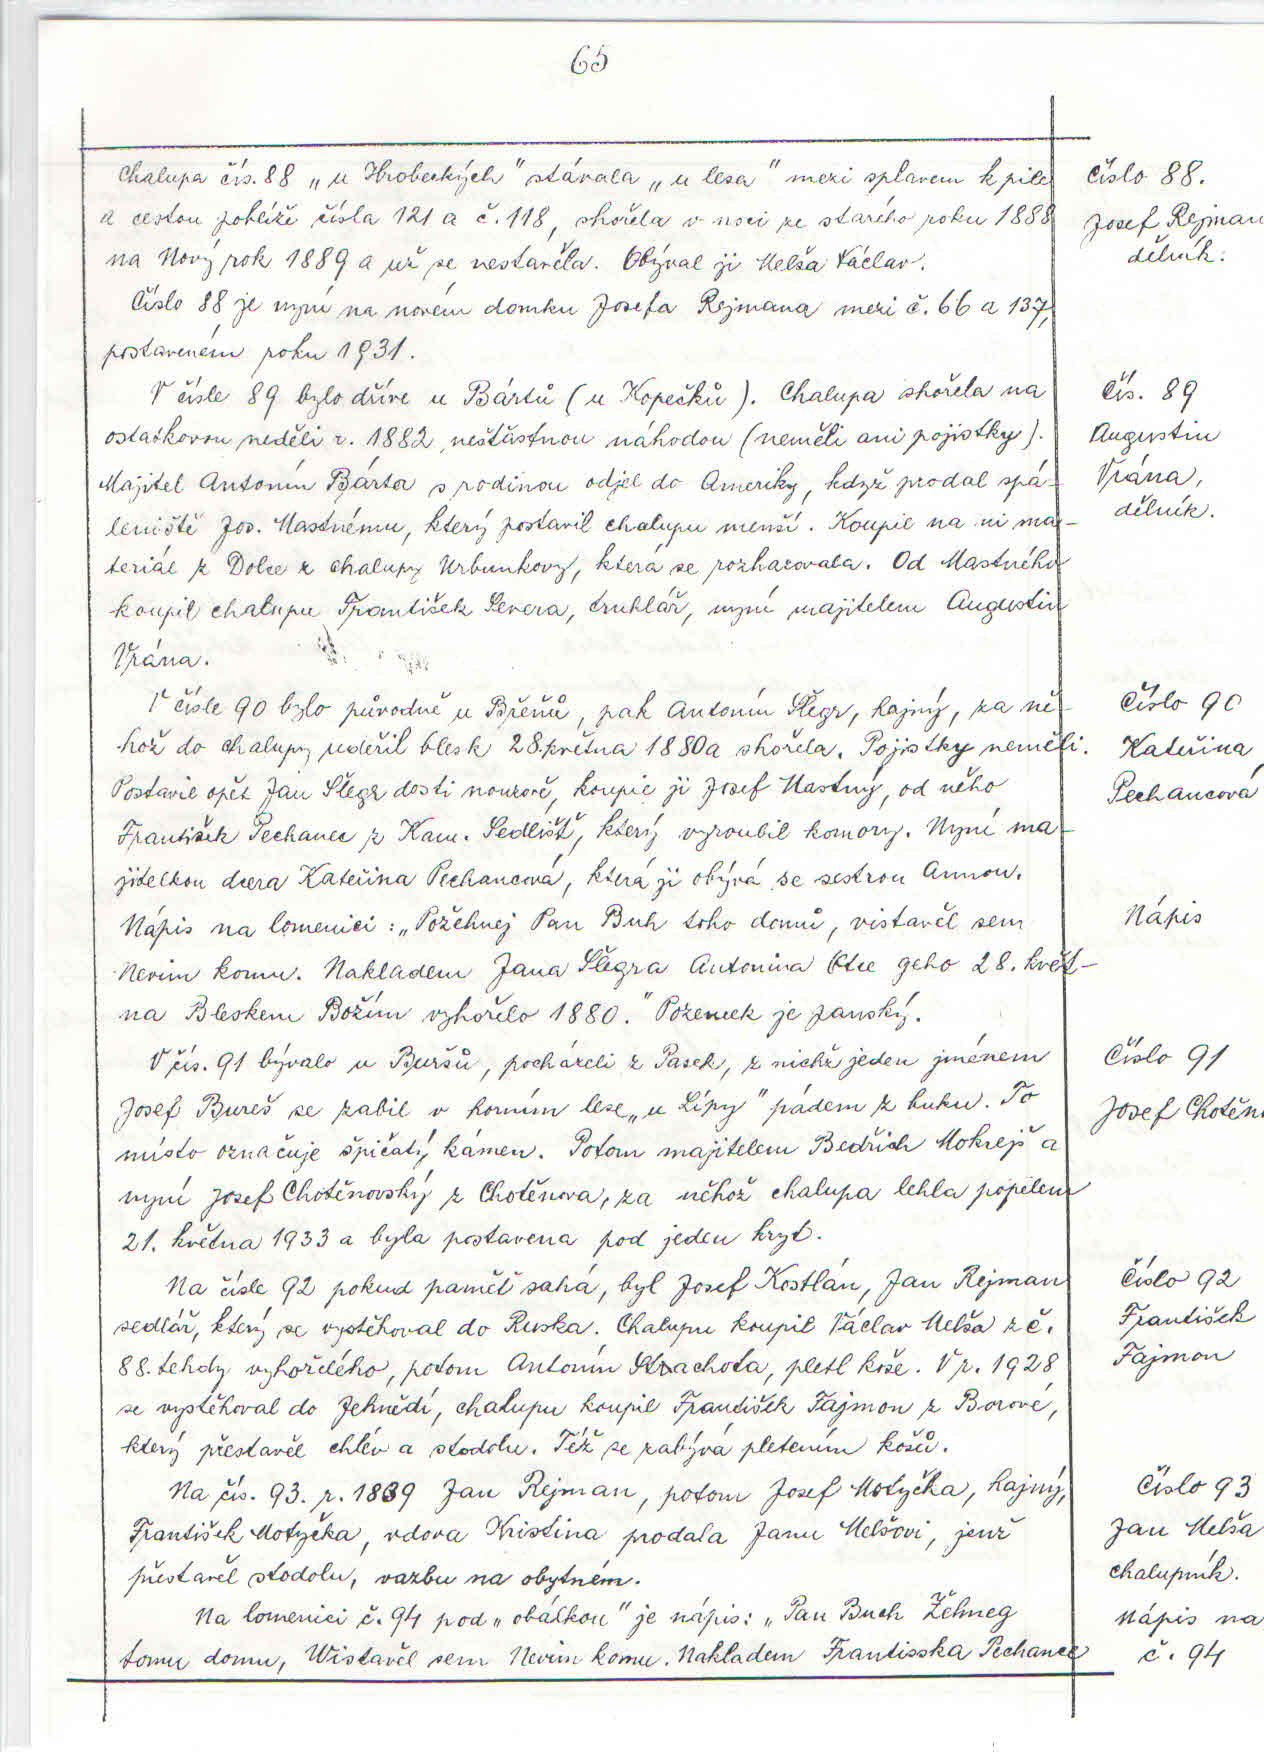 65
Chalupa čís. 88 „u Hrobeckých" stávala „u lesa" mezi splavem k pile
a cestou poblíže čísla 121 a č. 118, shořela v noci ze starého roku 1888
na Nový rok 1889 a už se nestavěla. Obýval ji Melša Václav.
Číslo 88 je nyní na novém domku Josefa Rejmana mezi č. 66 a 137,
postaveném roku 1931.
V čísle 89 bylo dříve u Bártů (u Kopečků). Chalupa shořela na
ostatkovou neděli r. 1882 nešťastnou náhodou (neměli ani pojistky).
Majitel Antonín Bárta s rodinou odjel do Ameriky, když prodal spá-
leniště Jos. Mastnému, který postavil chalupu menší. Koupil na ni ma-
teriál z Dolce z chalupy Urbunkovy, která se rozhazovala. Od Mastného
koupil chalupu František Severa, truhlář, nyní majitelem Augustin
Vrána.
V čísle 90 bylo původně u Břeňů, pak Antonín Šlégr, hajný, za ně-
hož do chalupy udeřil blesk 28. května 1880 a shořela. Pojistky neměli.
Postavil opět Jan Šlegr dosti nouzově, koupil ji Josef Mastný, od něho
František Pechanec z Kam. Sedlišť, který vyroubil komory. Nyní ma-
jitelkou dcera Kateřina Pechancová, která ji obývá se sestrou Annou.
Nápis na lomenici: „Požehnej Pan Buh toho domů, vistavěl sem
Nevim komu. Nakladem Jana Šlegra Antonina Otce geho 28. květ-
na Bleskem Božím vyhořelo 1880." Pozemek je janský.
V čís. 91 bývalo u Buršů, pocházeli z Pasek, z nichž jeden jménem
Josef Bureš se zabil v horním lese „u Lípy" pádem z buku. To
místo označuje špičatý kámen. Potom majitelem Bedřich Mokrejš a
nyní Josef Chotěnovský z Chotěnova, za něhož chalupa lehla popelem
21. května 1933 a byla postavena pod jeden kryt.
Na čísle 92 pokud paměť sahá, byl Josef Kostlán, Jan Rejman
sedlář, který se vystěhoval do Ruska. Chalupu koupil Václav Melša z č.
88. tehdy vyhořelého, potom Antonín Strachota, pletl koše. V r. 1928
se vystěhoval do Jehnědí, chalupu koupil František Fajmon z Borové,
který přestavěl chlév a stodolu. Též se zabývá pletením košů.
Na čís. 93. r. 1839 Jan Rejman, potom Josef Motyčka, hajný,
František Motyčka, vdova Kristina prodala Janu Melšovi, jenž
přestavěl stodolu, vazbu na obytném.
Na lomenici č. 94 pod „obálkou" je nápis: „Pan Buch Žehneg
tomu domu, Wistavěl sem Nevim komu. Nakladem Frantisska Pechance
Číslo 88.
Josef Rejman
dělník.
Čís. 89
Augustin
Vrána,
dělník.
Číslo 90
Kateřina
Pechancová
Nápis
Číslo 91
Josef
Číslo 92
František
Fajmon
Číslo 93
Jan Melša
chalupník.
Nápis na
č. 94